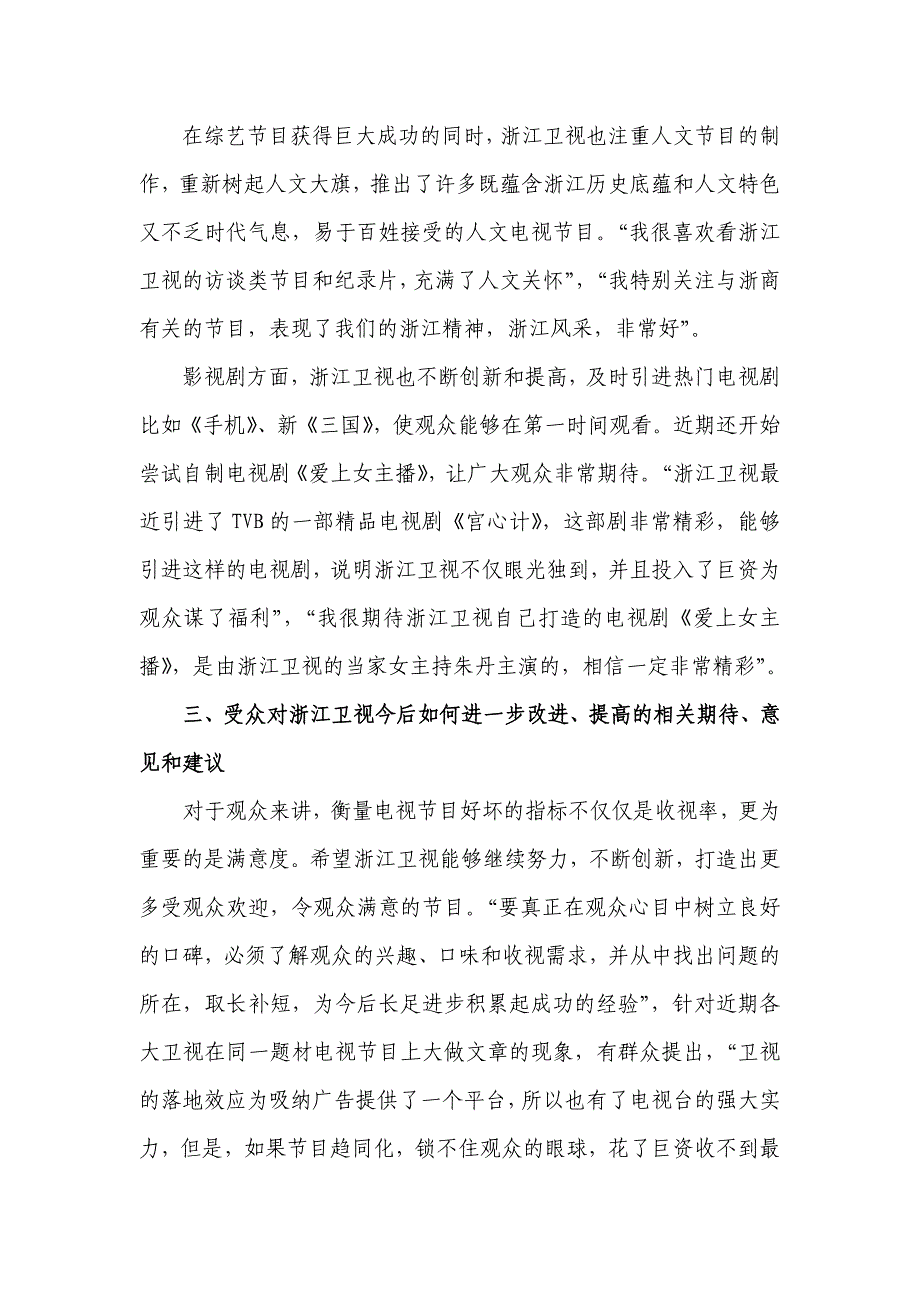 在综艺节目获得巨大成功的同时，浙江卫视也注重人文节目的制
作，重新树起人文大旗，推出了许多既蕴含浙江历史底蕴和人文特色
又不乏时代气息，易于百姓接受的人文电视节目。“我很喜欢看浙江
卫视的访谈类节目和纪录片，充满了人文关怀”，“我特别关注与浙商
有关的节目，表现了我们的浙江精神，浙江风采，非常好”。
影视剧方面，浙江卫视也不断创新和提高，及时引进热门电视剧
比如《手机》、新《三国》，使观众能够在第一时间观看。近期还开始
尝试自制电视剧《爱上女主播》，让广大观众非常期待。“浙江卫视最
近引进了 TVB 的一部精品电视剧《宫心计》，这部剧非常精彩，能够
引进这样的电视剧，说明浙江卫视不仅眼光独到，并且投入了巨资为
观众谋了福利”，“我很期待浙江卫视自己打造的电视剧《爱上女主
播》，是由浙江卫视的当家女主持朱丹主演的，相信一定非常精彩”。
三、受众对浙江卫视今后如何进一步改进、提高的相关期待、意
见和建议
对于观众来讲，衡量电视节目好坏的指标不仅仅是收视率，更为
重要的是满意度。希望浙江卫视能够继续努力，不断创新，打造出更
多受观众欢迎，令观众满意的节目。“要真正在观众心目中树立良好
的口碑，必须了解观众的兴趣、口味和收视需求，并从中找出问题的
所在，取长补短，为今后长足进步积累起成功的经验”，针对近期各
大卫视在同一题材电视节目上大做文章的现象，有群众提出，“卫视
的落地效应为吸纳广告提供了一个平台，所以也有了电视台的强大实
力，但是，如果节目趋同化，锁不住观众的眼球，花了巨资收不到最